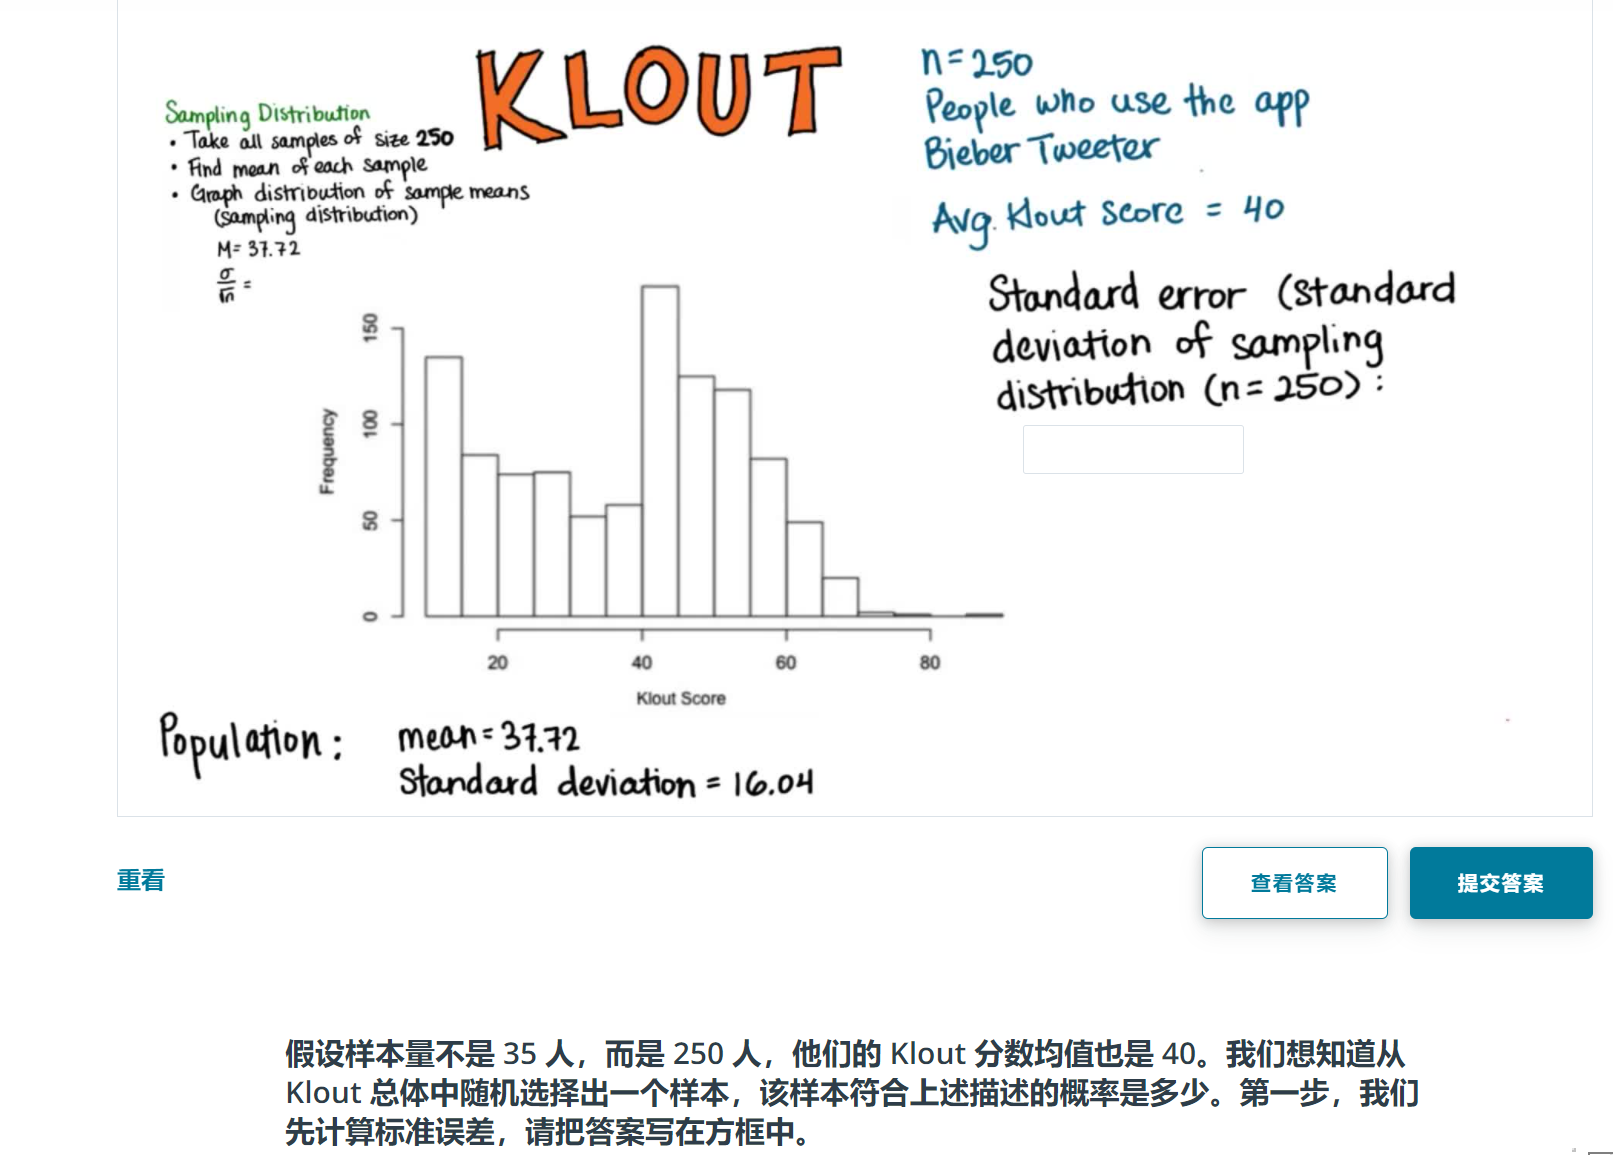 KLOUT
Sampling Distribution
• Take all samples of size 250
• Find mean of each sample
• Graph distribution of sample means
(sampling distribution)
M= 37.72
σ/√n =
n=250
People who use the app
Bieber Tweeter
Avg. Klout Score = 40
Standard error (standard
deviation of sampling
distribution (n=250):
Frequency
150
100
50
0
20 40 60 80
Klout Score
Population: mean=37.72
Standard deviation = 16.04
重看
查看答案
提交答案
假设样本量不是 35 人，而是 250 人，他们的 Klout 分数均值也是 40。我们想知道从
Klout 总体中随机选择出一个样本，该样本符合上述描述的概率是多少。第一步，我们
先计算标准误差，请把答案写在方框中。